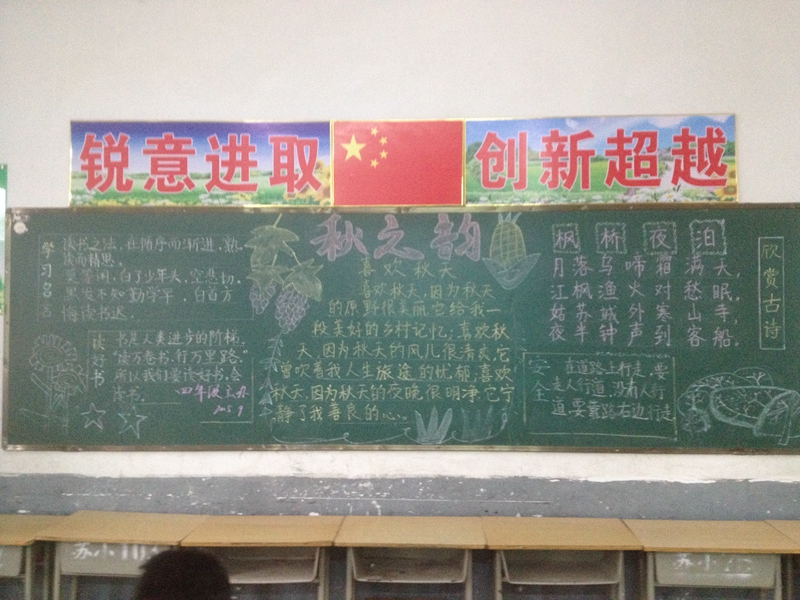 锐意进取
创新超越
学习名言
读书之法,在循序而渐进,熟
读而精思。
莫等闲,白了少年头,空悲切。
黑发不知勤学早,白首方
悔读书迟。
读好书
书是人类进步的阶梯,
"读万卷书,行万里路。"
所以我们要读好书,会
读书。
四年级主办
秋之韵
喜欢秋天
喜欢秋天,因为秋天
的原野很美丽,它给我一
段美好的乡村记忆;喜欢秋
天,因为秋天的风儿很清爽,它
曾吹着我人生旅途的忧郁;喜欢
秋天,因为秋天的夜晚很明净,它宁
静了我善良的心。
枫桥夜泊
月落乌啼霜满天,
江枫渔火对愁眠。
姑苏城外寒山寺,
夜半钟声到客船。
欣赏古诗
安全
在道路上行走,要
走人行道,没有人行
道,要靠路右边行走
苏小
苏小